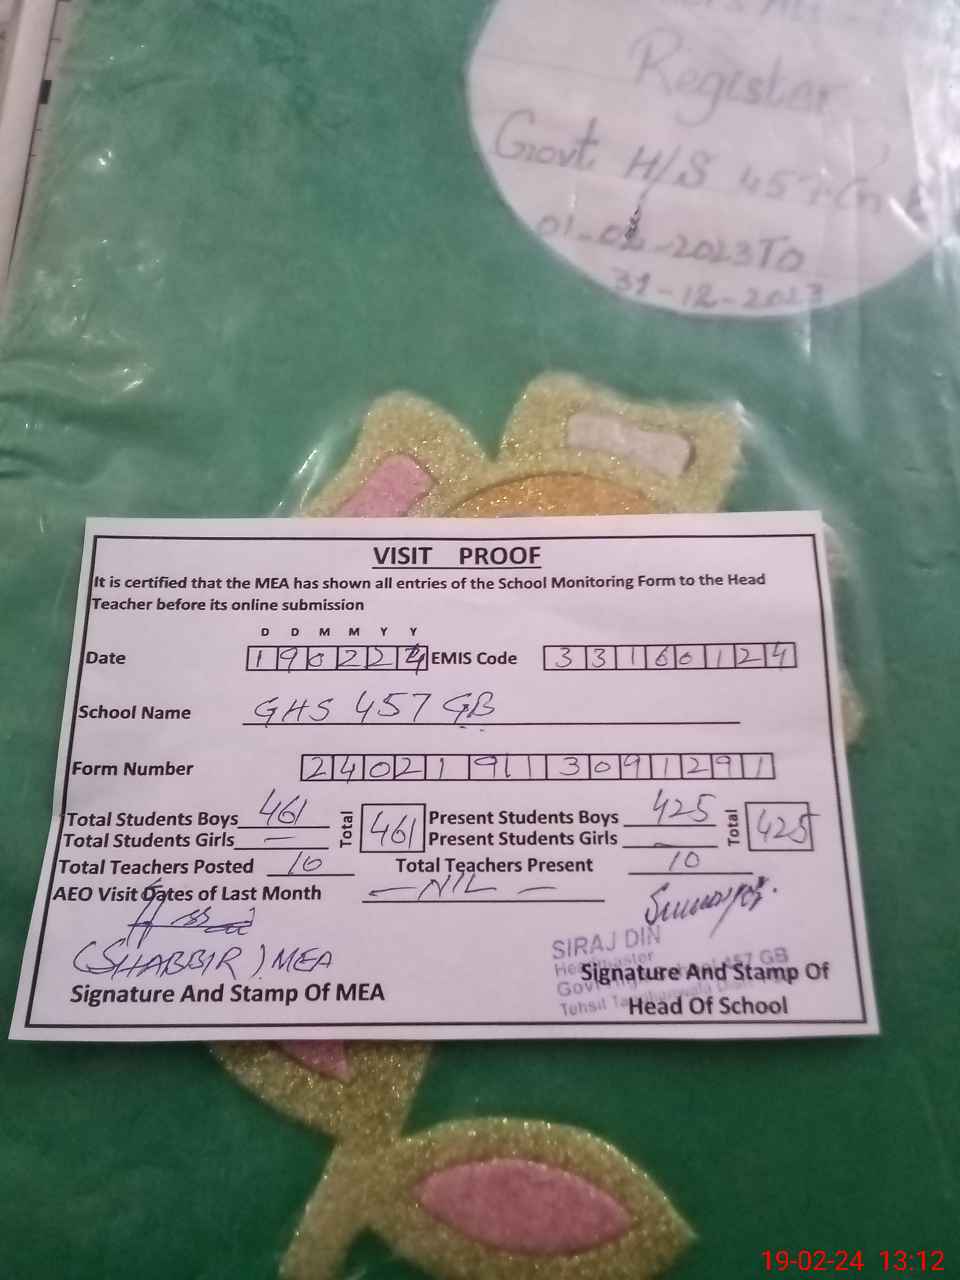 Register
Govt. H/S 457
01-02-2023 To
31-12-2023
VISIT PROOF
It is certified that the MEA has shown all entries of the School Monitoring Form to the Head
Teacher before its online submission
D D M M Y Y
Date 190224 EMIS Code 33160124
School Name GHS 457 GB
Form Number
Total Students Boys 461 Total 461 Present Students Boys 425 Total 425
Total Students Girls — Present Students Girls —
Total Teachers Posted 10 Total Teachers Present 10
AEO Visit Dates of Last Month — NIL —
(SHABBIR) MEA
SIRAJ DIN
Signature And Stamp Of MEA
Headmaster
457 GB
Signature And Stamp Of
Tehsil
Head Of School
19-02-24 13:12